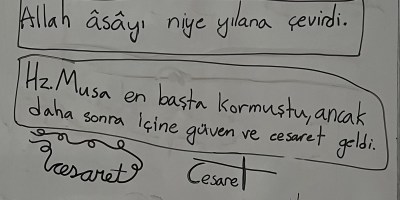 Allah âsâyı niye yılana çevirdi.
Hz. Musa en başta kormuştu, ancak
daha sonra içine güven ve cesaret geldi.
cesaret
Cesaret